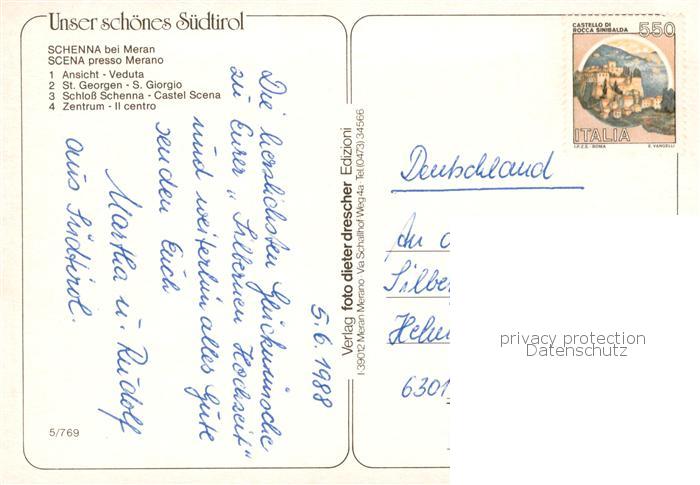 Unser schönes Südtirol
SCHENNA bei Meran
SCENA presso Merano
1 Ansicht - Veduta
2 St. Georgen - S. Giorgio
3 Schloß Schenna - Castel Scena
4 Zentrum - Il centro
5.6.1988
Die herzlichsten Glückwünsche
zu Eurer "Silbernen Hochzeit"
und weiterhin alles Gute
senden Euch
Martha u. Rudolf
aus Südtirol.
5/769
Verlag foto dieter drescher Edizioni
I-39012 Meran Merano Via Schallhof Weg 4a · Tel (0473) 34566
CASTELLO DI
ROCCA SINIBALDA
550
ITALIA
I.P.Z.S. - ROMA E. VANGELLI
Deutschland
An
Silbe
Helm
6301
privacy protection
Datenschutz